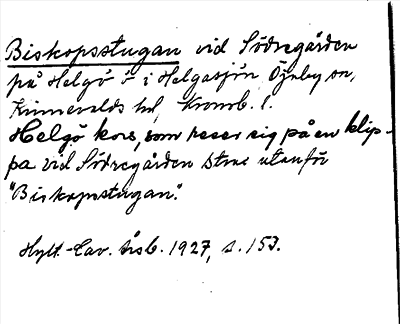 Biskopsstugan vid Södregården
på Helgö ö i Helgasjön, Öjaby sn,
Kinnevalds hd, Kronob. l.
Helgö kors, som reser sig på en klip-
pa vid Södregården strax utanför
"Biskopsstugan".
Hylt.-Cav. årsb. 1927, s. 153.